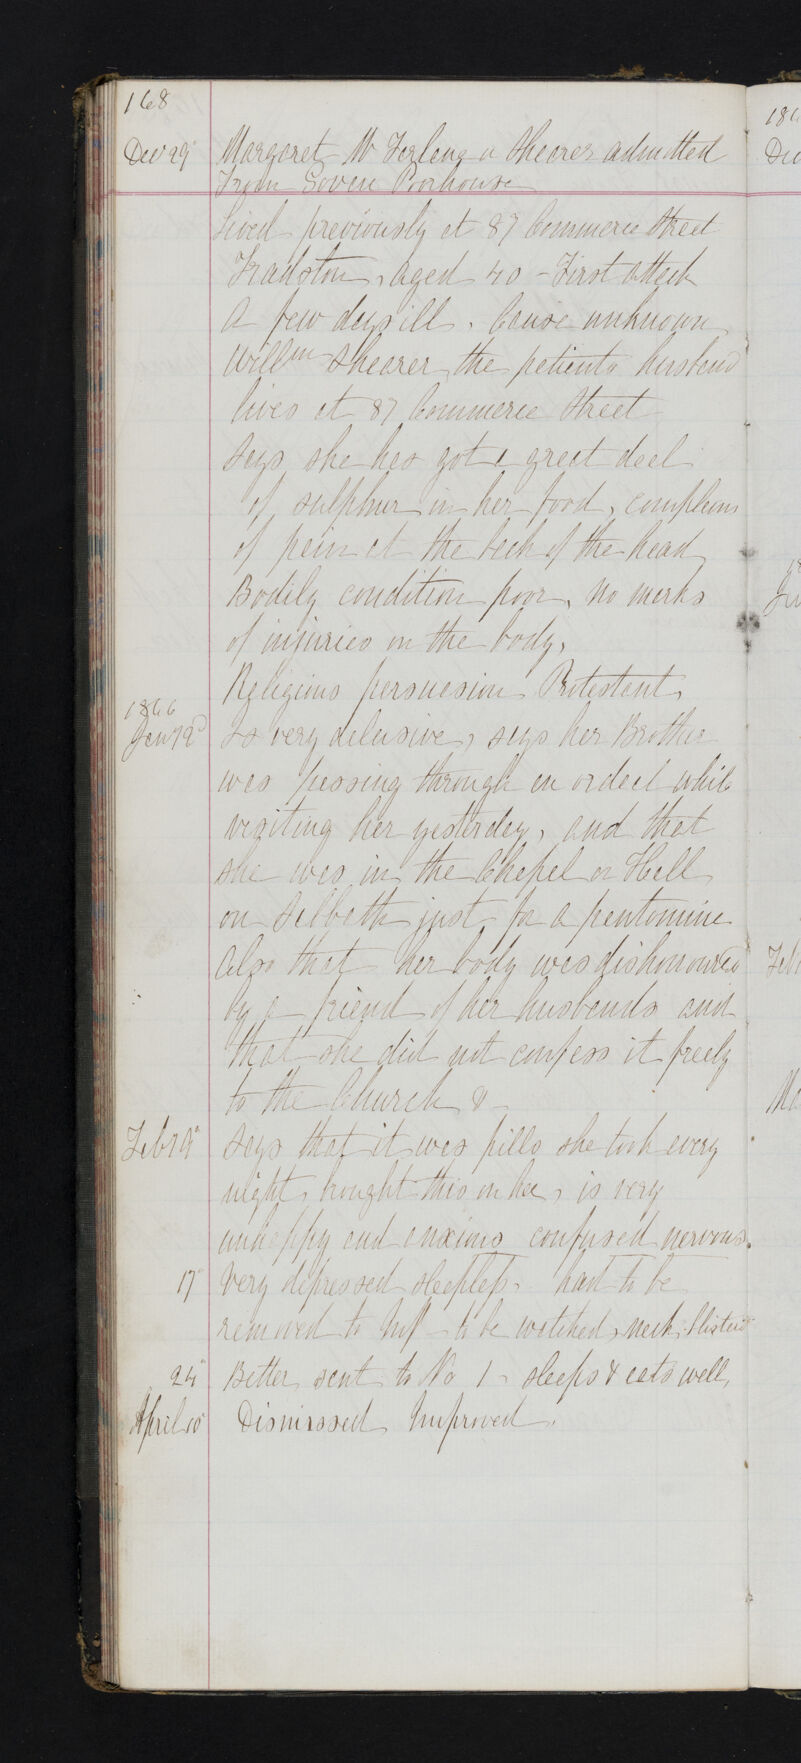 168
Dec 29 Margaret Mc Farlane or Shearer admitted
From Govan Poorhouse
Lived previously at 87 Commerce Street
Tradston, aged 40 - First attack
A few days ill. Cause unknown
Willm Shearer the patients husband
lives at 87 Commerce Street
Says she has got a great deal
of sulphur in her food, complains
of pain at the back of the head
Bodily condition poor, no marks
of injuries on the body,
Religious persuasion Protestant,
1866
Jany 2d Is very delusive, says her Brother
was passing through an ordeal while
visiting her yesterday, and that
she was in the Chapel or Hell
on Sabbath just for a pantomine
Also that her body was dishonoured
by a friend of her husbands and
that she did not confess it freely
to the Church &
Feby 9 Says that it was pills she took every
night, brought this on her, is very
unhappy and anxious confused nervous.
17 Very depressed sleepless. had to be
removed to Inf - to be watched, neck blistered
24 Better sent to No 1 - sleeps & eats well,
April 10 Dismissed Improved.